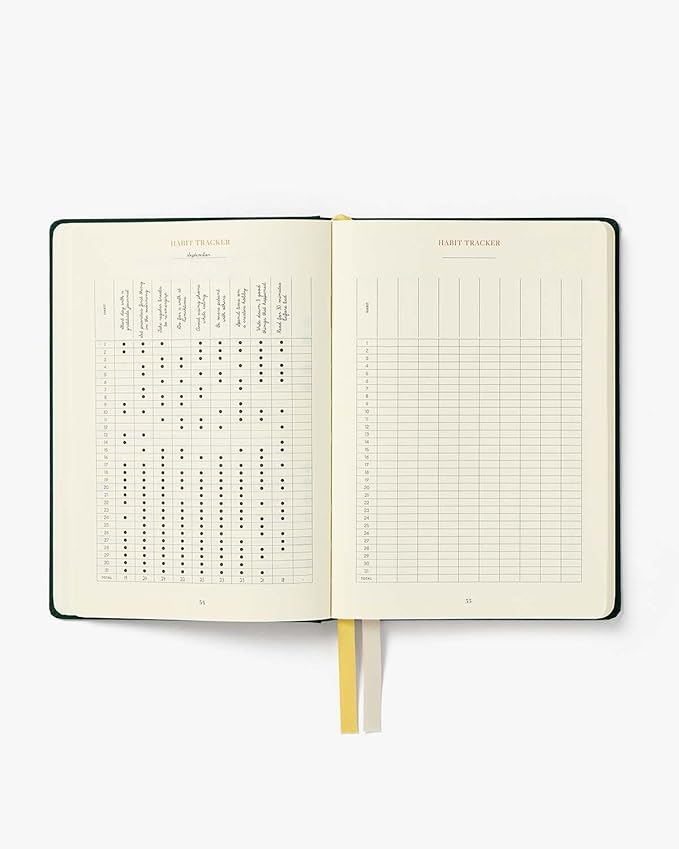 HABIT TRACKER
HABIT
Start day with a
gratitude journal
Set priorities first thing
in the morning
Take regular breaks
to re-energize
Go for a walk at
lunchtime
Avoid using phone
while eating
Be more patient
with others
Spend time on
a creative hobby
Write down 3 good
things that happened
Read for 30 minutes
before bed
1
2
3
4
5
6
7
8
9
10
11
12
13
14
15
16
17
18
19
20
21
22
23
24
25
26
27
28
29
30
31
TOTAL
54
HABIT TRACKER
HABIT
1
2
3
4
5
6
7
8
9
10
11
12
13
14
15
16
17
18
19
20
21
22
23
24
25
26
27
28
29
30
31
TOTAL
55